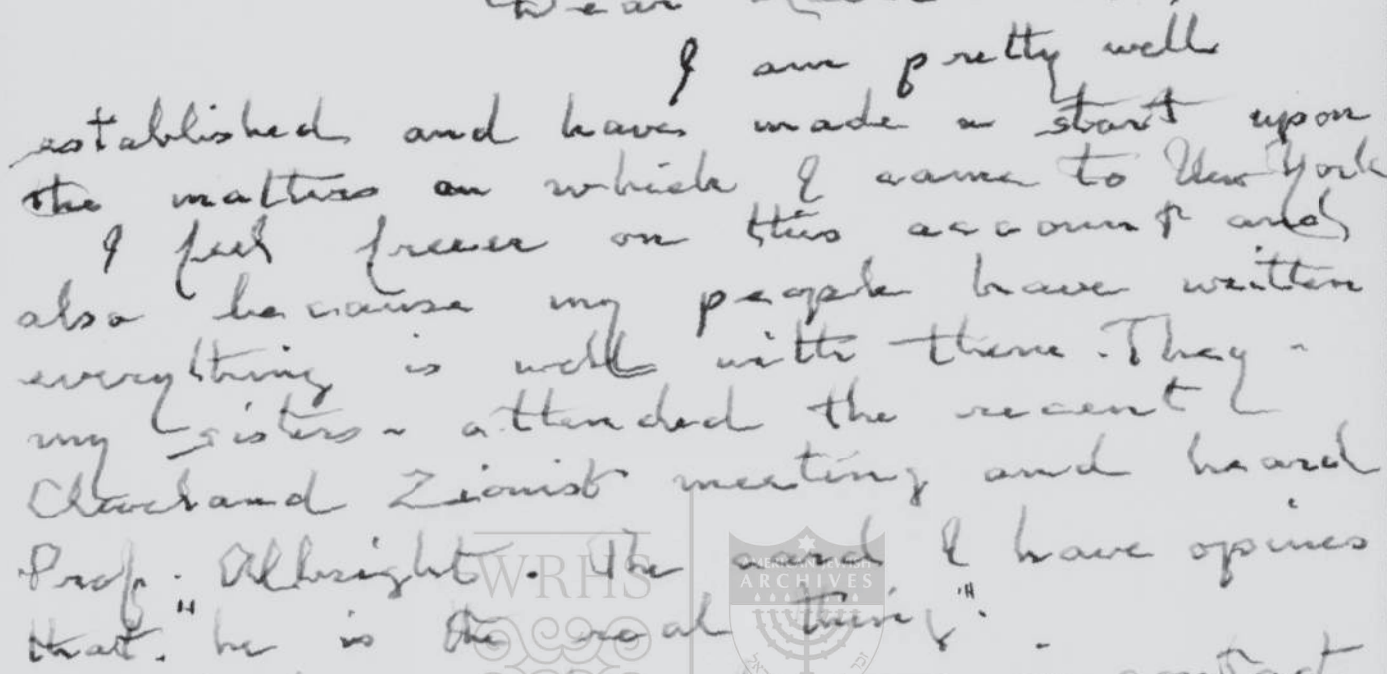 Dear
I am pretty well
established and have made a start upon
the matters on which I came to New York
I feel freer on this account and
also because my people have written
everything is well with them. They -
my sisters - attended the recent
Cleveland Zionist meeting and heard
Prof. Albright. The card I have opines
that "he is the real thing".
contact
WRHS
AMERICAN JEWISH
ARCHIVES